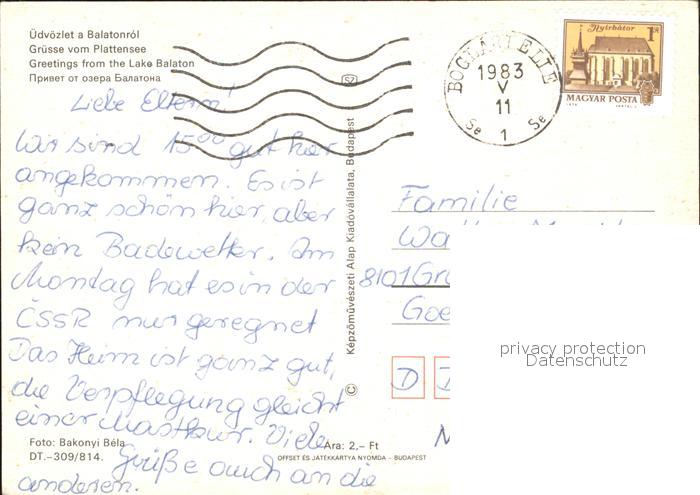 Üdvözlet a Balatonról
Grüsse vom Plattensee
Greetings from the Lake Balaton
Привет от озера Балатона
Liebe Eltern!
Wir sind 15⁰⁰ gut hier
angekommen. Es ist
ganz schön hier, aber
kein Badewetter. Am
Montag hat es in der
ČSSR nur geregnet
Das Heim ist ganz gut,
die Verpflegung gleicht
einer Mastkur. Viele
Grüße auch an die
anderen.
Foto: Bakonyi Béla
DT.–309/814.
Ára: 2,– Ft
OFFSET ÉS JÁTÉKKÁRTYA NYOMDA – BUDAPEST
© Képzőművészeti Alap Kiadóvállalata, Budapest
SZ
BOGLÁRLELLE
1983
V
11
1
Nyírbátor
1 Ft
MAGYAR POSTA
Familie
8101 Gr
Goe
D
privacy protection
Datenschutz